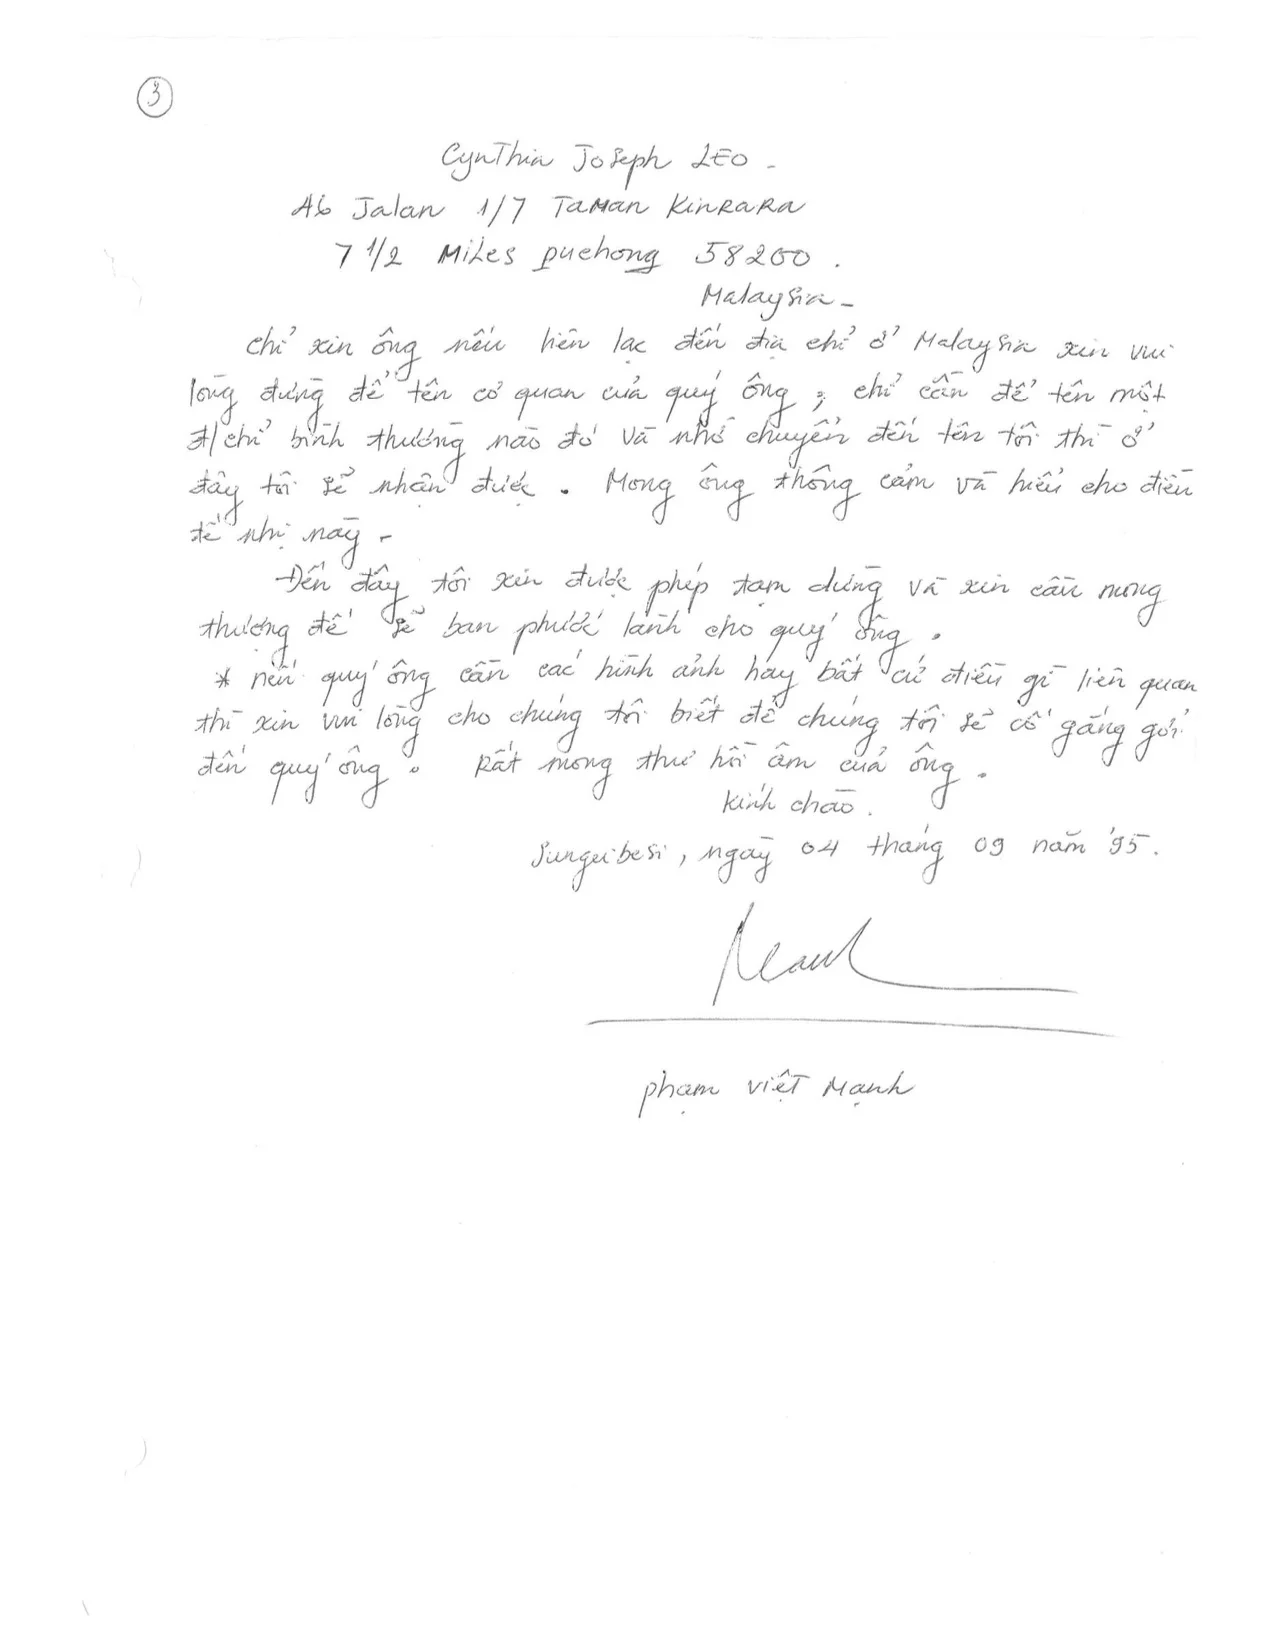 3
Cynthia Joseph LEO -
A6 Jalan 1/7 Taman Kinrara
7 1/2 Miles puchong 58200.
Malaysia -
chỉ xin ông nếu liên lạc đến địa chỉ ở Malaysia xin vui
lòng đừng để tên cơ quan của quý ông, chỉ cần để tên một
đ/chỉ bình thường nào đó và nhớ chuyển đến tên tôi thì ở
đây tôi sẽ nhận được. Mong ông thông cảm và hiểu cho điều
đề nhị này -
Đến đây tôi xin được phép tạm dừng và xin cầu mong
thượng đế sẽ ban phước lành cho quý ông.
* nếu quý ông cần các hình ảnh hay bất cứ điều gì liên quan
thì xin vui lòng cho chúng tôi biết để chúng tôi sẽ cố gắng gởi
đến quý ông. Rất mong thư hồi âm của ông.
Kính chào.
Sungeibesi, ngày 04 tháng 09 năm '95.
Manh
phạm việt Mạnh